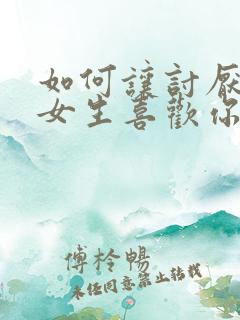 如何讓討厭
女生喜歡你
傅柃暢
未经同意禁止转载